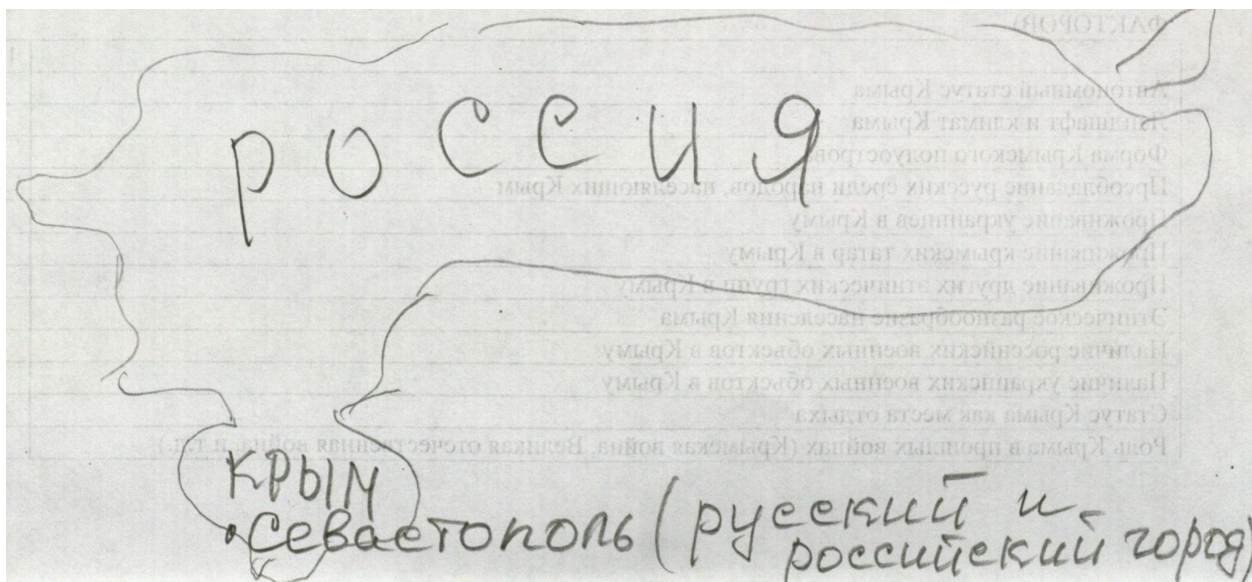 россия
КРЫМ
Севастополь (русский и
российский город)